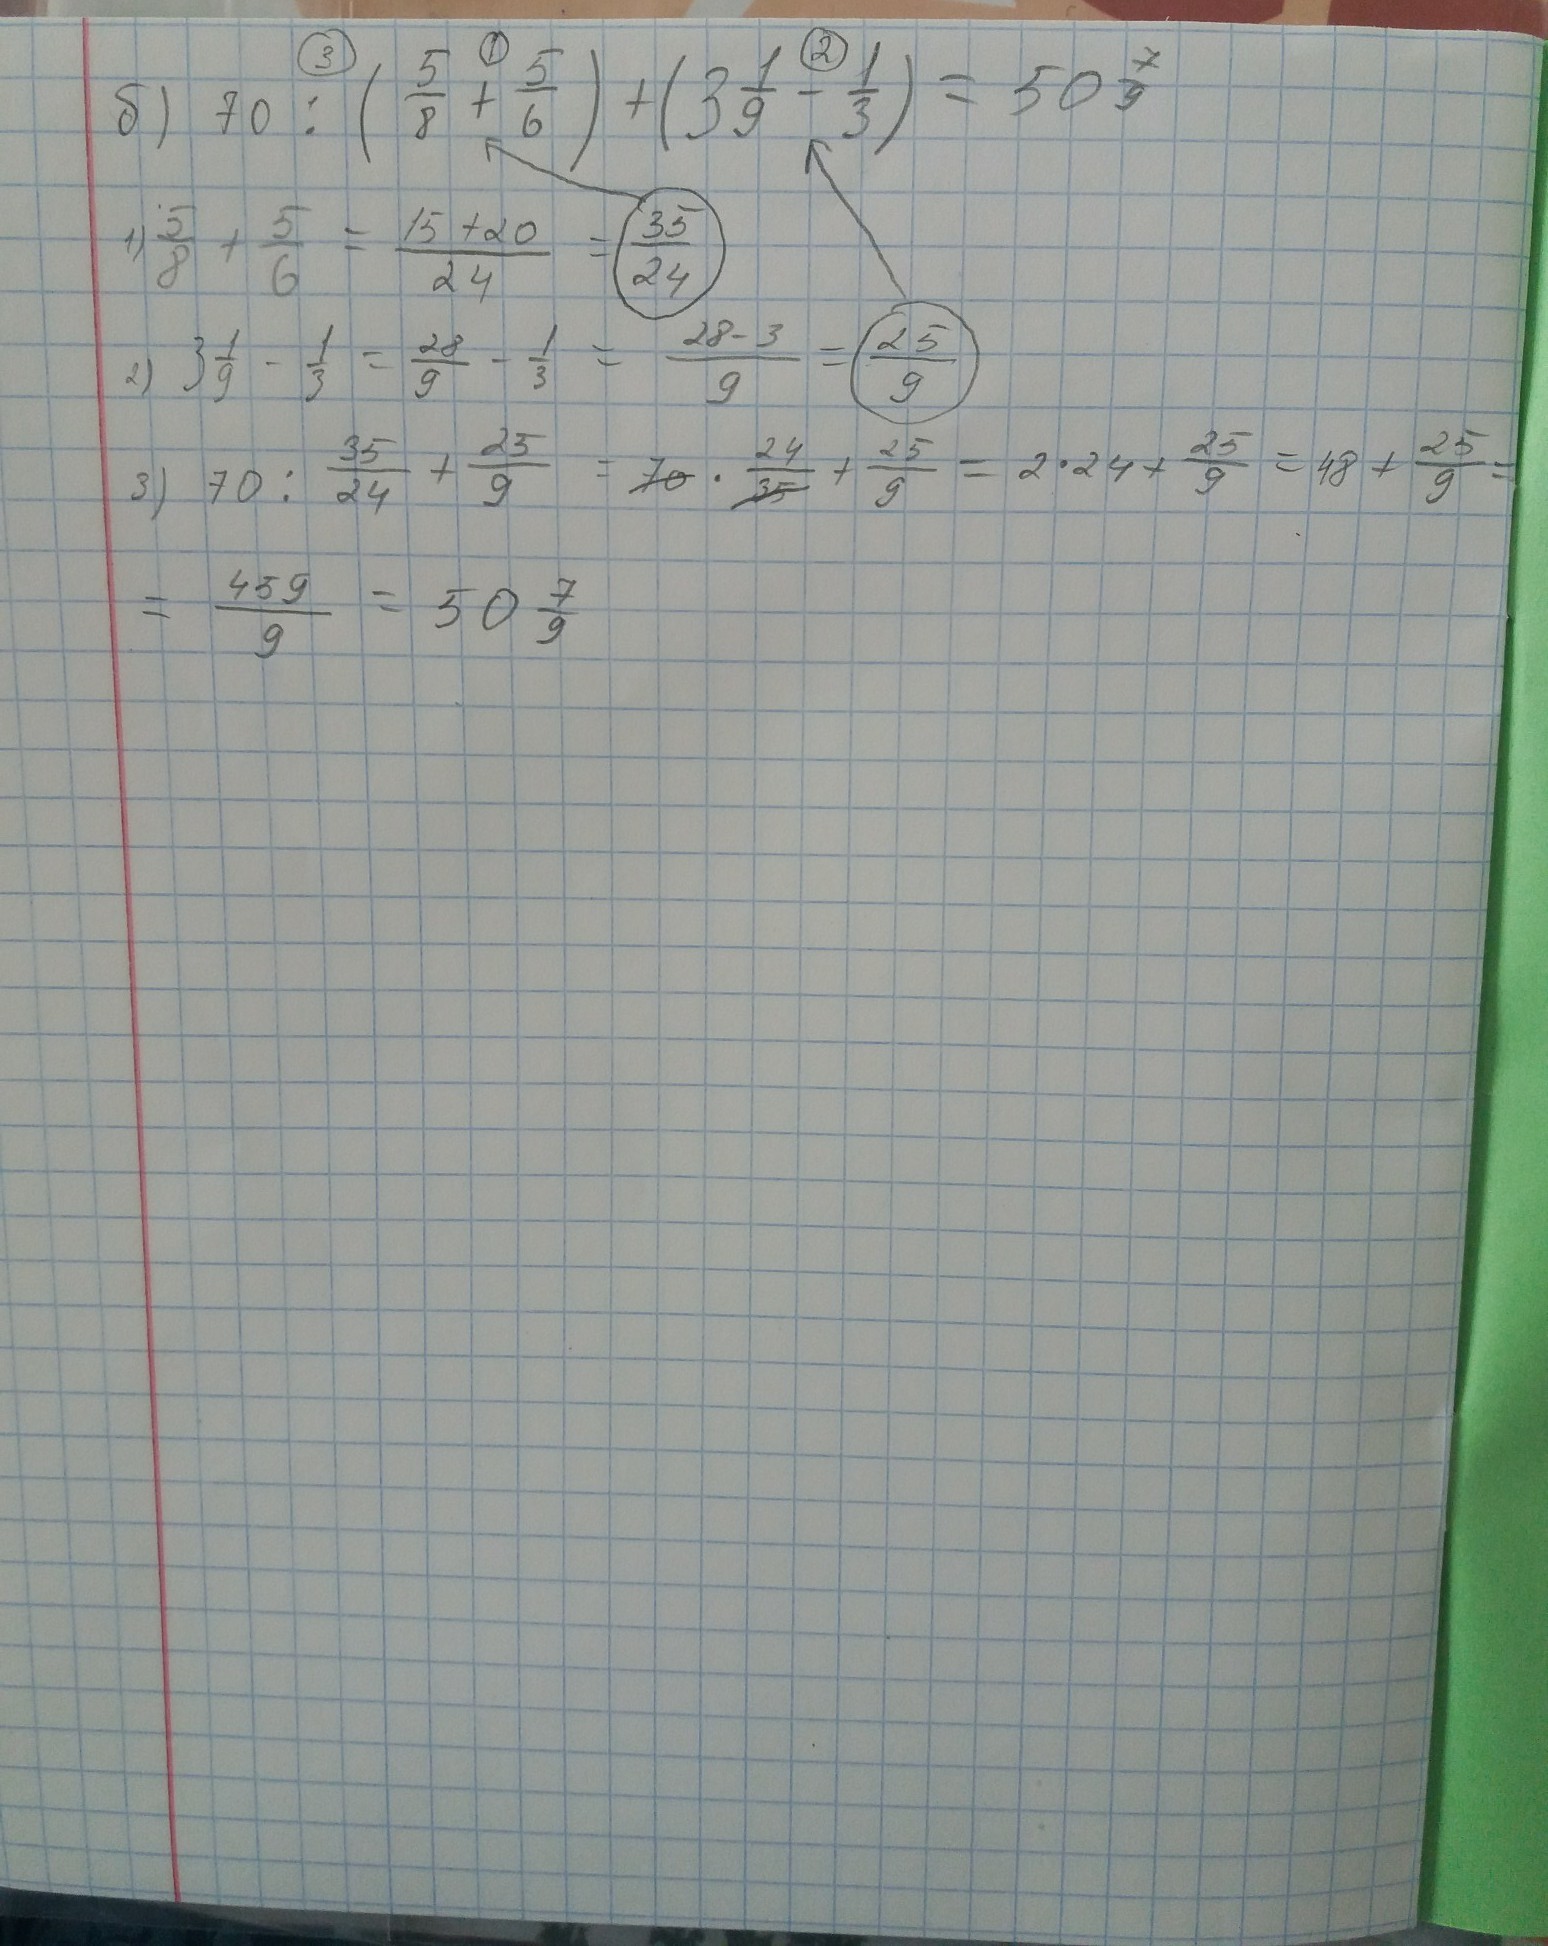 ③ ① ②
б) 70 : (5/8 + 5/6) + (3 1/9 - 1/3) = 50 7/9
1) 5/8 + 5/6 = (15+20)/24 = 35/24
2) 3 1/9 - 1/3 = 28/9 - 1/3 = (28-3)/9 = 25/9
3) 70 : 35/24 + 25/9 = 70 · 24/35 + 25/9 = 2·24 + 25/9 = 48 + 25/9 =
= 459/9 = 50 7/9